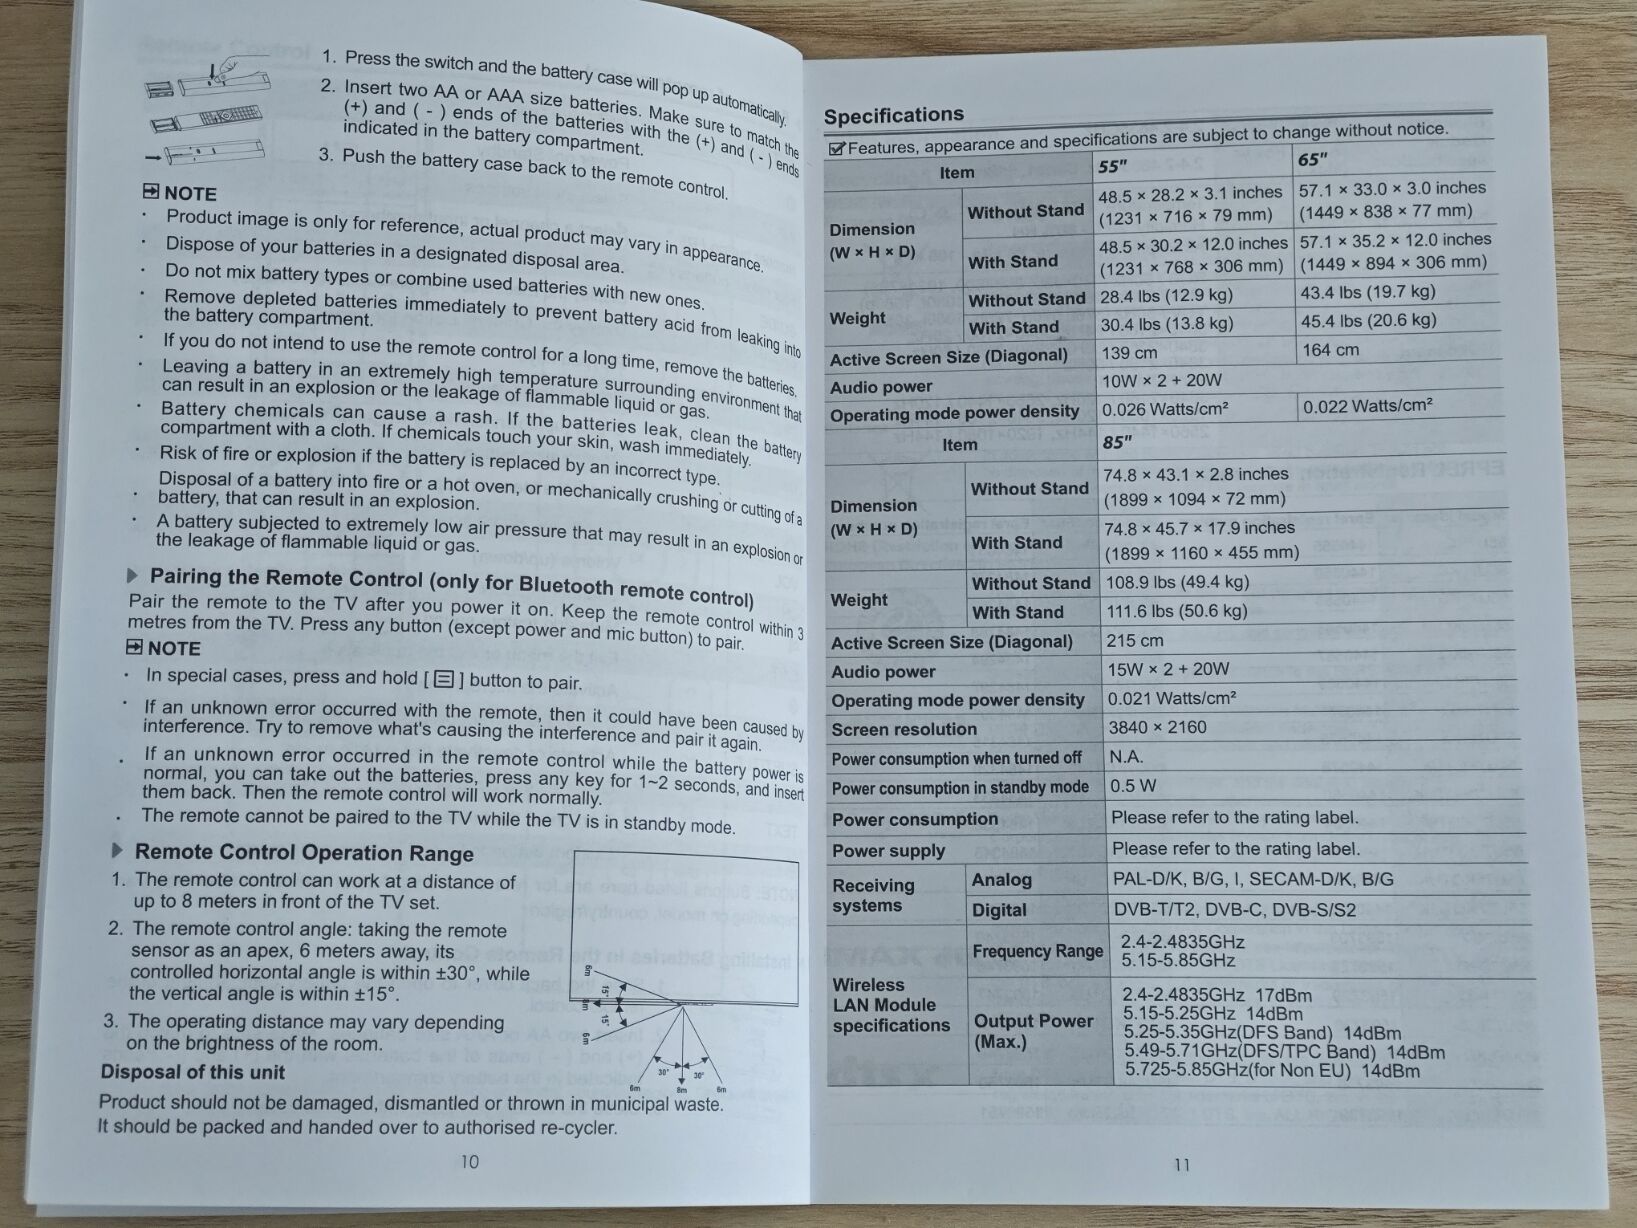 1. Press the switch and the battery case will pop up automatically.
2. Insert two AA or AAA size batteries. Make sure to match the
(+) and ( - ) ends of the batteries with the (+) and ( - ) ends
indicated in the battery compartment.
3. Push the battery case back to the remote control.
NOTE
· Product image is only for reference, actual product may vary in appearance.
· Dispose of your batteries in a designated disposal area.
· Do not mix battery types or combine used batteries with new ones.
· Remove depleted batteries immediately to prevent battery acid from leaking into
the battery compartment.
· If you do not intend to use the remote control for a long time, remove the batteries.
· Leaving a battery in an extremely high temperature surrounding environment that
can result in an explosion or the leakage of flammable liquid or gas.
· Battery chemicals can cause a rash. If the batteries leak, clean the battery
compartment with a cloth. If chemicals touch your skin, wash immediately.
· Risk of fire or explosion if the battery is replaced by an incorrect type.
Disposal of a battery into fire or a hot oven, or mechanically crushing or cutting of a
· battery, that can result in an explosion.
· A battery subjected to extremely low air pressure that may result in an explosion or
the leakage of flammable liquid or gas.
Pairing the Remote Control (only for Bluetooth remote control)
Pair the remote to the TV after you power it on. Keep the remote control within 3
metres from the TV. Press any button (except power and mic button) to pair.
NOTE
· In special cases, press and hold [ ] button to pair.
· If an unknown error occurred with the remote, then it could have been caused by
interference. Try to remove what's causing the interference and pair it again.
· If an unknown error occurred in the remote control while the battery power is
normal, you can take out the batteries, press any key for 1~2 seconds, and insert
them back. Then the remote control will work normally.
· The remote cannot be paired to the TV while the TV is in standby mode.
Remote Control Operation Range
1. The remote control can work at a distance of
up to 8 meters in front of the TV set.
2. The remote control angle: taking the remote
sensor as an apex, 6 meters away, its
controlled horizontal angle is within ±30°, while
the vertical angle is within ±15°.
3. The operating distance may vary depending
on the brightness of the room.
6m
15°
8m
15°
6m
30° 30°
6m 8m 6m
Disposal of this unit
Product should not be damaged, dismantled or thrown in municipal waste.
It should be packed and handed over to authorised re-cycler.
10
Specifications
Features, appearance and specifications are subject to change without notice.
Item 55" 65"
Dimension
(W × H × D)
Without Stand 48.5 × 28.2 × 3.1 inches 57.1 × 33.0 × 3.0 inches
(1231 × 716 × 79 mm) (1449 × 838 × 77 mm)
With Stand 48.5 × 30.2 × 12.0 inches 57.1 × 35.2 × 12.0 inches
(1231 × 768 × 306 mm) (1449 × 894 × 306 mm)
Weight
Without Stand 28.4 lbs (12.9 kg) 43.4 lbs (19.7 kg)
With Stand 30.4 lbs (13.8 kg) 45.4 lbs (20.6 kg)
Active Screen Size (Diagonal) 139 cm 164 cm
Audio power 10W × 2 + 20W
Operating mode power density 0.026 Watts/cm² 0.022 Watts/cm²
Item 85"
Dimension
(W × H × D)
Without Stand 74.8 × 43.1 × 2.8 inches
(1899 × 1094 × 72 mm)
With Stand 74.8 × 45.7 × 17.9 inches
(1899 × 1160 × 455 mm)
Weight
Without Stand 108.9 lbs (49.4 kg)
With Stand 111.6 lbs (50.6 kg)
Active Screen Size (Diagonal) 215 cm
Audio power 15W × 2 + 20W
Operating mode power density 0.021 Watts/cm²
Screen resolution 3840 × 2160
Power consumption when turned off N.A.
Power consumption in standby mode 0.5 W
Power consumption Please refer to the rating label.
Power supply Please refer to the rating label.
Receiving
systems
Analog PAL-D/K, B/G, I, SECAM-D/K, B/G
Digital DVB-T/T2, DVB-C, DVB-S/S2
Wireless
LAN Module
specifications
Frequency Range 2.4-2.4835GHz
5.15-5.85GHz
Output Power
(Max.)
2.4-2.4835GHz 17dBm
5.15-5.25GHz 14dBm
5.25-5.35GHz(DFS Band) 14dBm
5.49-5.71GHz(DFS/TPC Band) 14dBm
5.725-5.85GHz(for Non EU) 14dBm
11